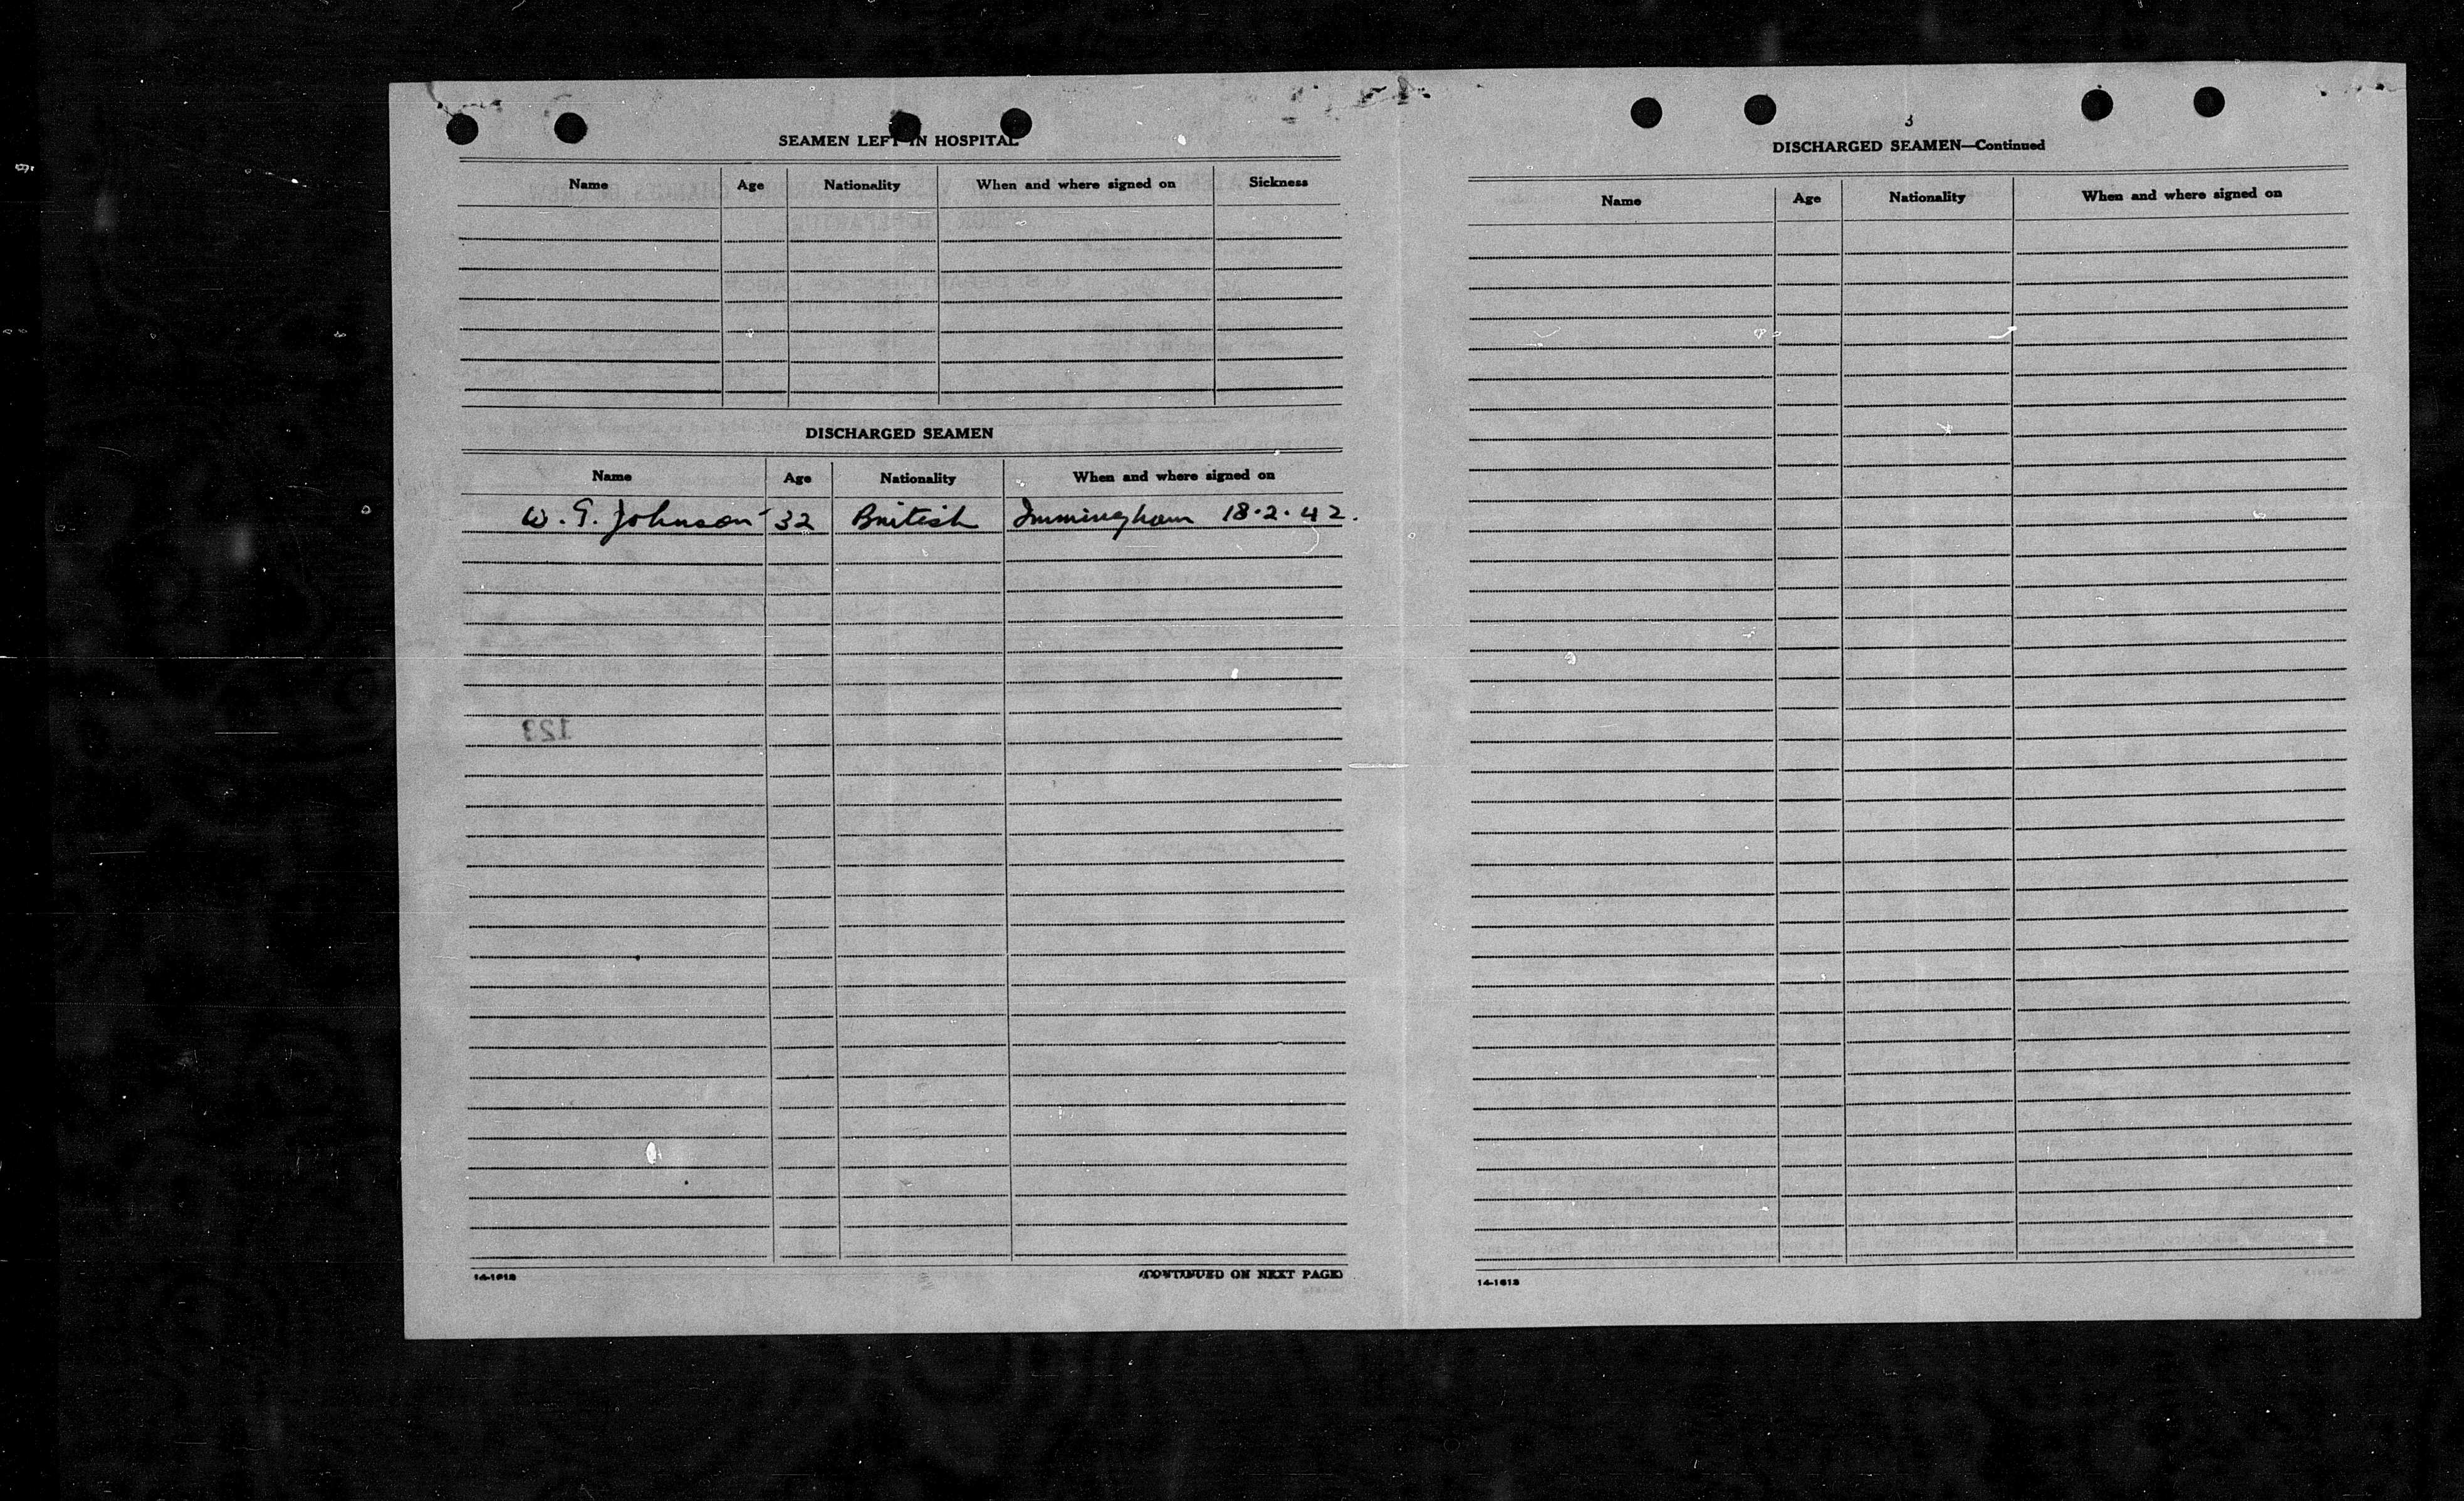 SEAMEN LEFT IN HOSPITAL
Name Age Nationality When and where signed on Sickness
DISCHARGED SEAMEN
Name Age Nationality When and where signed on
W. G. Johnson 32 British Immingham 18.2.42.
123
14-1613
(CONTINUED ON NEXT PAGE)
3
DISCHARGED SEAMEN—Continued
Name Age Nationality When and where signed on
14-1613